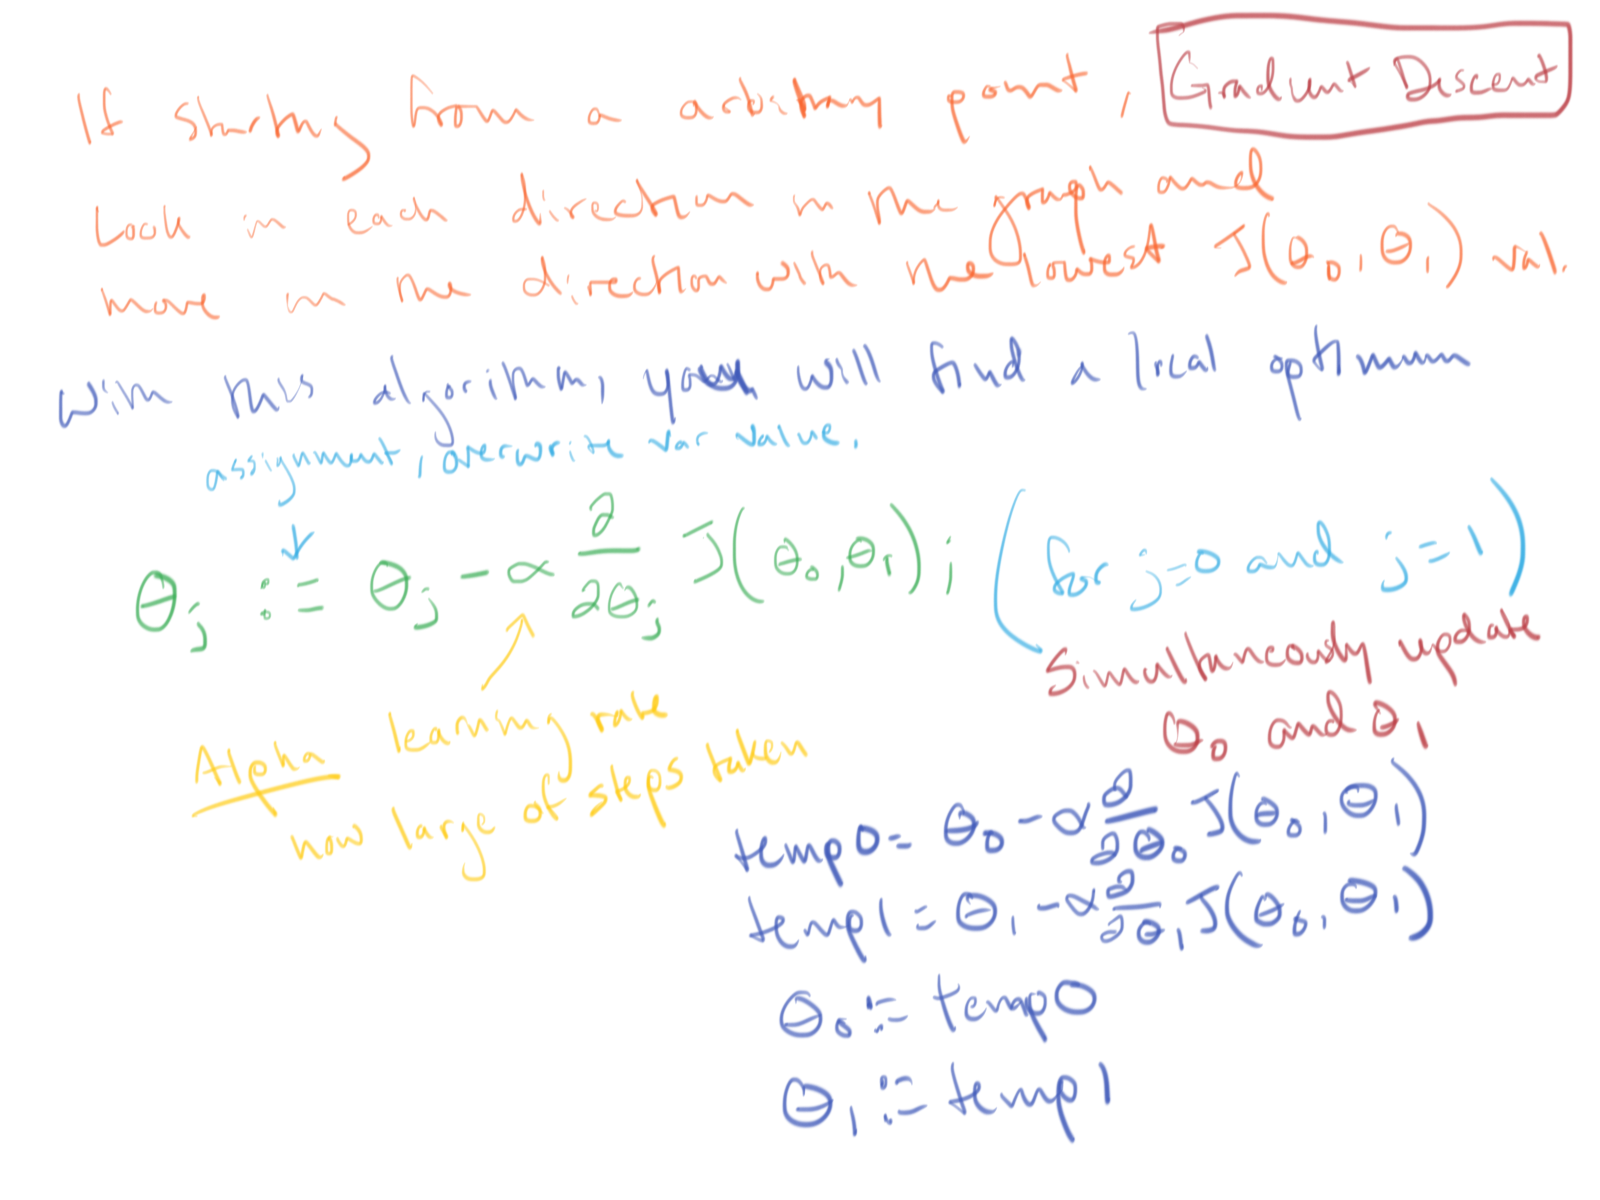 If starting from a arbitrary point, Gradient Descent
Look in each direction in the graph and
move in the direction with the lowest J(θ₀, θ₁) val.
With this algorithm, you will find a local optimum
assignment, overwrite var value.
θⱼ := θⱼ - α ∂/∂θⱼ J(θ₀, θ₁); (for j=0 and j=1)
Simultaneously update
θ₀ and θ₁
Alpha learning rate
how large of steps taken
temp0 = θ₀ - α ∂/∂θ₀ J(θ₀, θ₁)
temp1 = θ₁ - α ∂/∂θ₁ J(θ₀, θ₁)
θ₀ := temp0
θ₁ := temp1